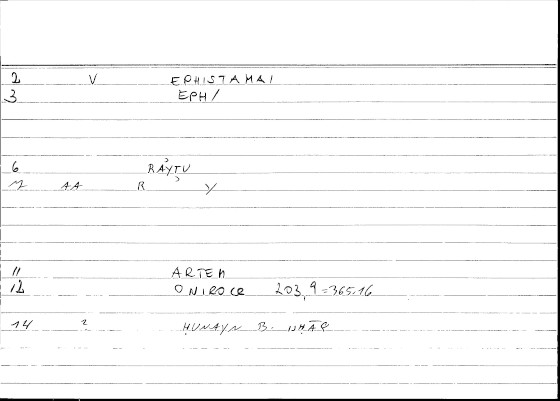 2 V EPHISTAMAI
3 EPH/
6 RAʾYTU
AA R ʾ Y
11 ARTEM
12 ONIROCR 203,9=365.16
14 ? ḤUNAYN B. ISḤĀQ